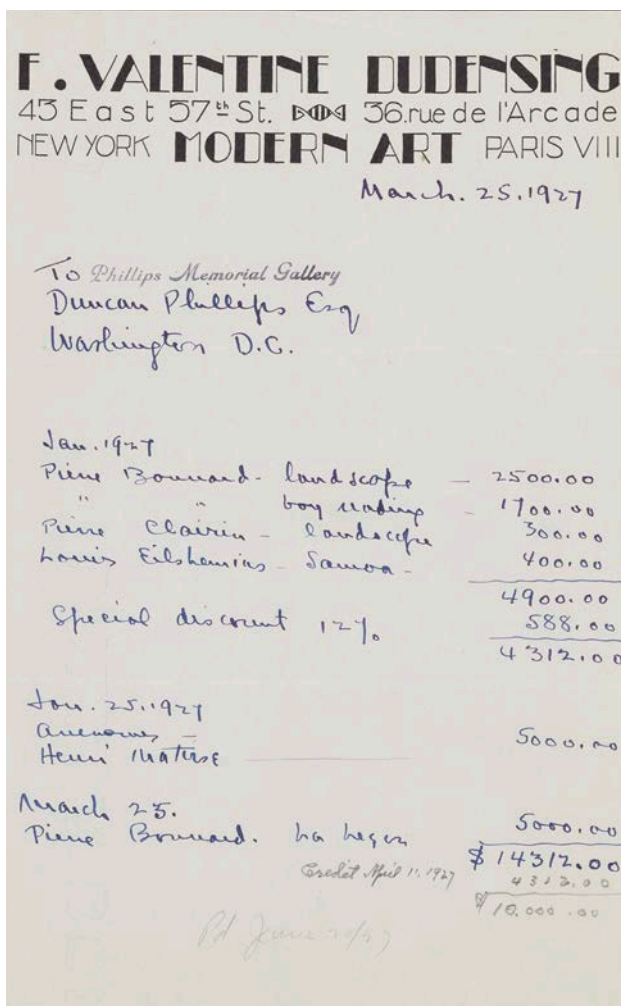 F. VALENTINE DUDENSING
43 East 57th St. 36. rue de l'Arcade
NEW YORK MODERN ART PARIS VIII
March. 25. 1927
To Phillips Memorial Gallery
Duncan Phillips Esq
Washington D.C.
Jan. 1927
Pierre Bonnard - landscape - 2500.00
" " boy reading - 1700.00
Pierre Clairin - landscape 300.00
Louis Eilshemius - Samoa - 400.00
4900.00
Special discount 12% 588.00
4312.00
Jan. 25. 1927
Anemones - 5000.00
Henri Matisse
March 25.
Pierre Bonnard. La Leçon 5000.00
$ 14312.00
Credit April 1. 1927 4312.00
$ 10.000.00
Pd June